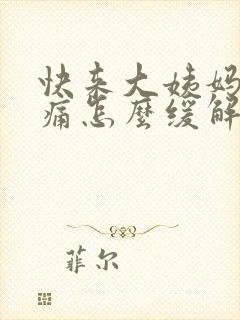 快来大姨妈
痛怎麼缓解
菲尔